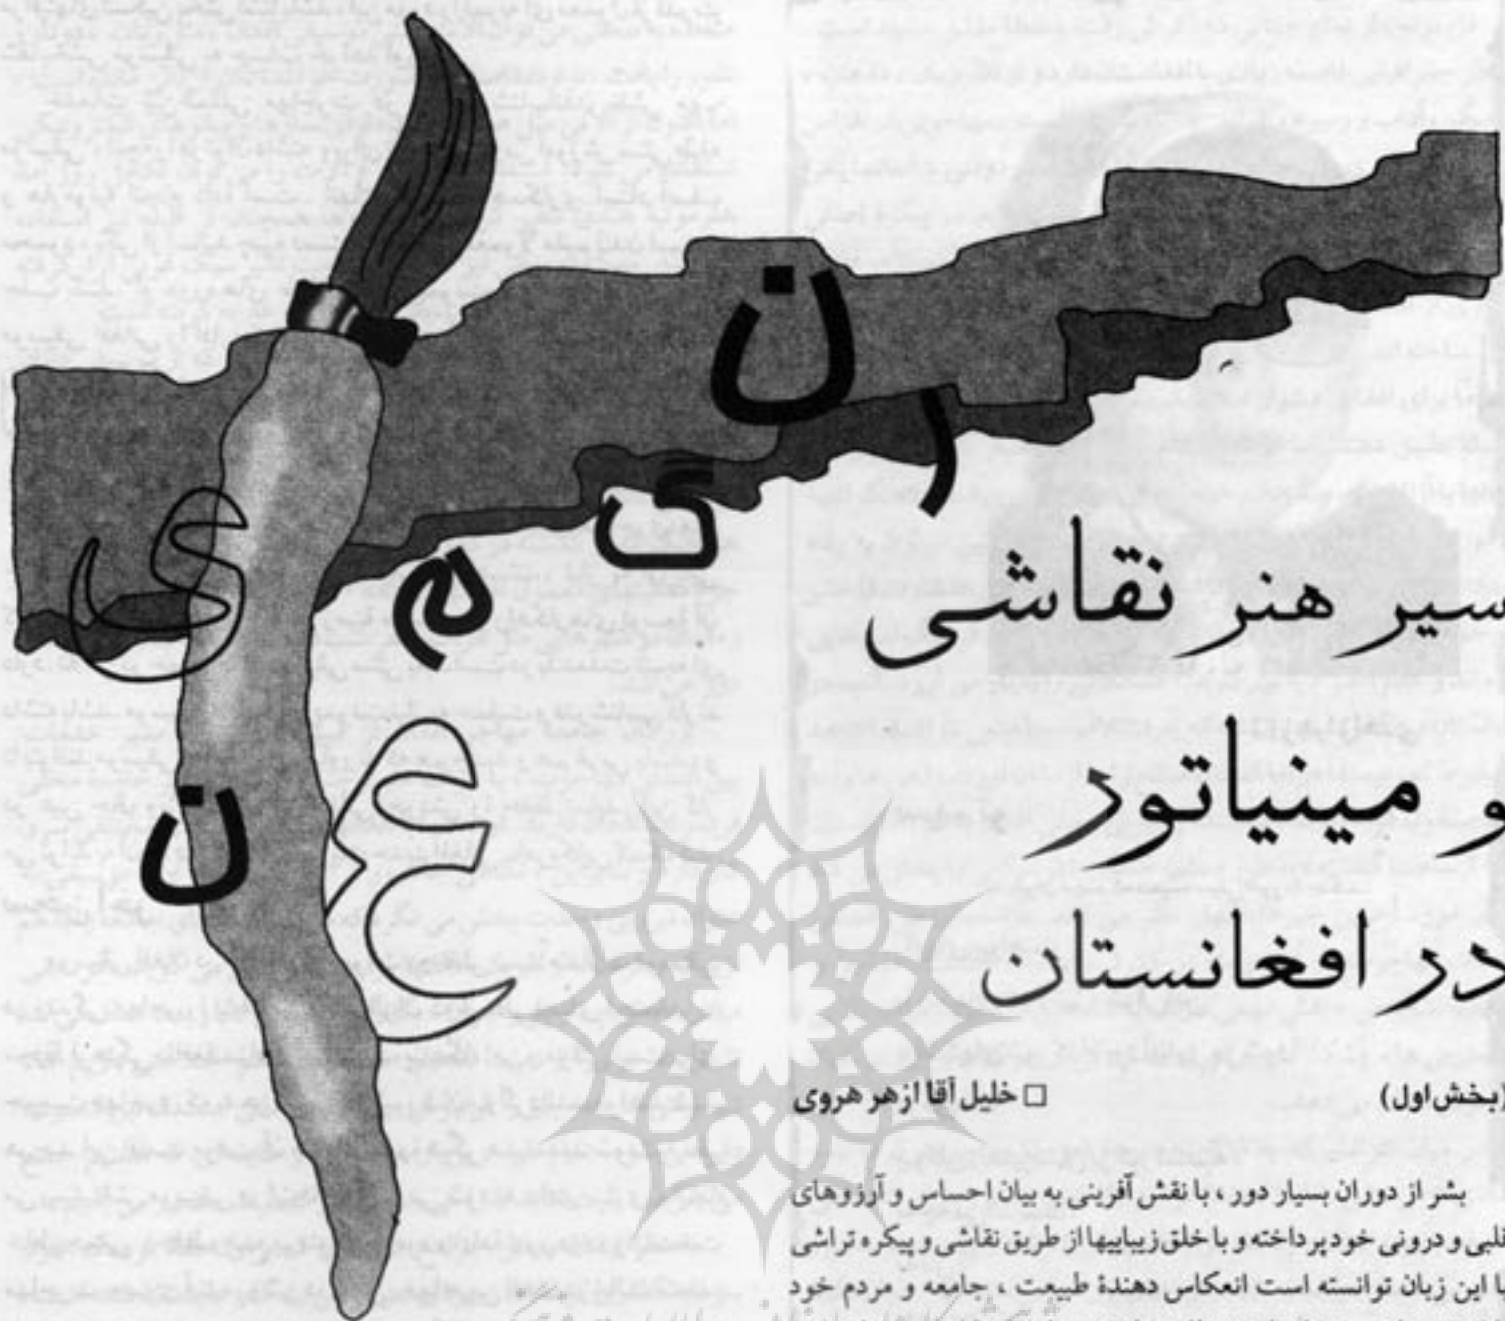 سیر هنر نقاشی
و مینیاتور
در افغانستان
(بخش اول)
□ خلیل آقا ازهر هروی
بشر از دوران بسیار دور ، با نقش آفرینی به بیان احساس و آرزوهای
قلبی و درونی خود پرداخته و با خلق زیباییها از طریق نقاشی و پیکره تراشی
با این زبان توانسته است انعکاس دهندهٔ طبیعت ، جامعه و مردم خود
ن
ر
گ
م
ی
ع
ن